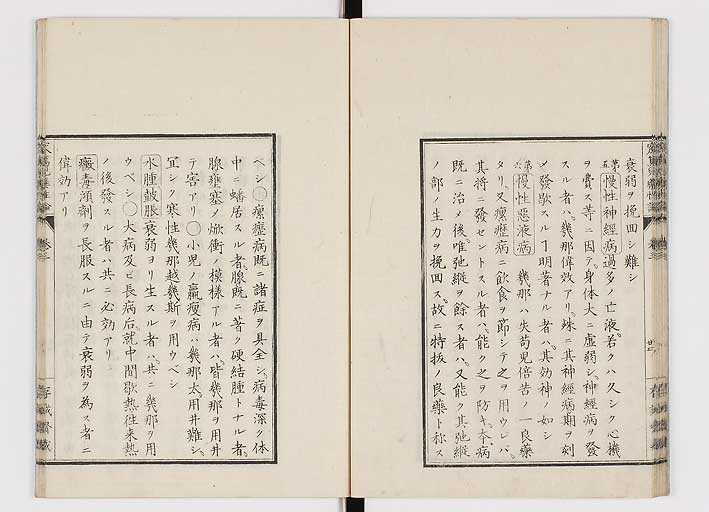 衰弱ヲ挽回シ難シ
第五慢性神經病過多ノ亡液若クハ久シク心機
ヲ費ス等ニ因テ身体大ニ虚弱シ神經病ヲ發
スル者ハ幾那偉效アリ殊ニ其神經病期ヲ刻
メ發歇スルヿ明著ナル者ハ其効神ノ如シ
第六慢性惡液病 幾那ハ失苟児倍苦ノ良藥
タリ又瘰癧病 飲食ヲ節シテ之ヲ用ウレバ
其將ニ發セントスル者ハ能ク之ヲ防キ本病
既ニ治メ後唯弛縦ヲ餘ス者ハ又能ク其弛縦
ノ部ノ生力ヲ挽回ス故ニ特抜ノ良藥ト称ス
ベシ〇瘰癧病既ニ諸症ヲ具全シ病毒深ク体
中ニ蟠居スル者腺既ニ著ク硬結腫トナル者
腺壅塞ノ焮衝ノ模様アル者ハ皆幾那ヲ用井
テ害アリ〇小児ノ羸瘦病ハ幾那太用井難シ
冝シク寒性幾那越幾斯ヲ用ウベシ
水腫皷脹衰弱ヨリ生スル者ハ共ニ幾那ヲ用
ウベシ〇大病及ヒ長病后就中間歇熱往来熱
ノ後發スル者ハ共ニ必効アリ
黴毒瀕劑ヲ長服スルニ由テ衰弱ヲ為ス者ニ
偉効アリ